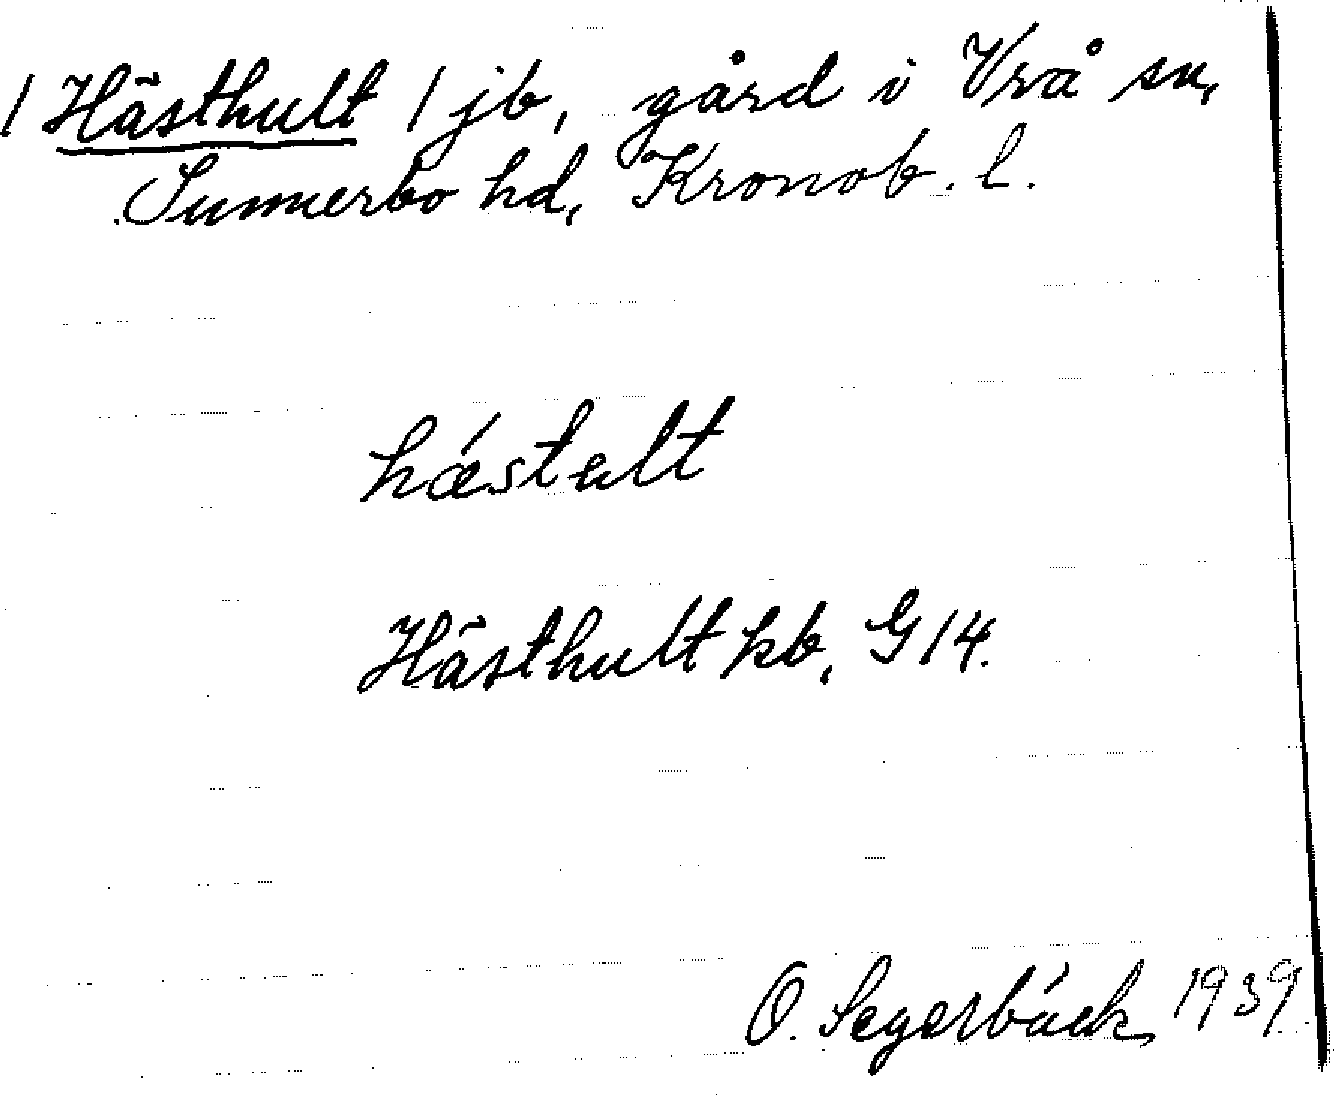 / Hästhult / jb, gård i Vrå sn,
Sunnerbo hd, Kronob. l.
hǽstult
Hästhult kb, G 14.
O. Segerbäck 1939